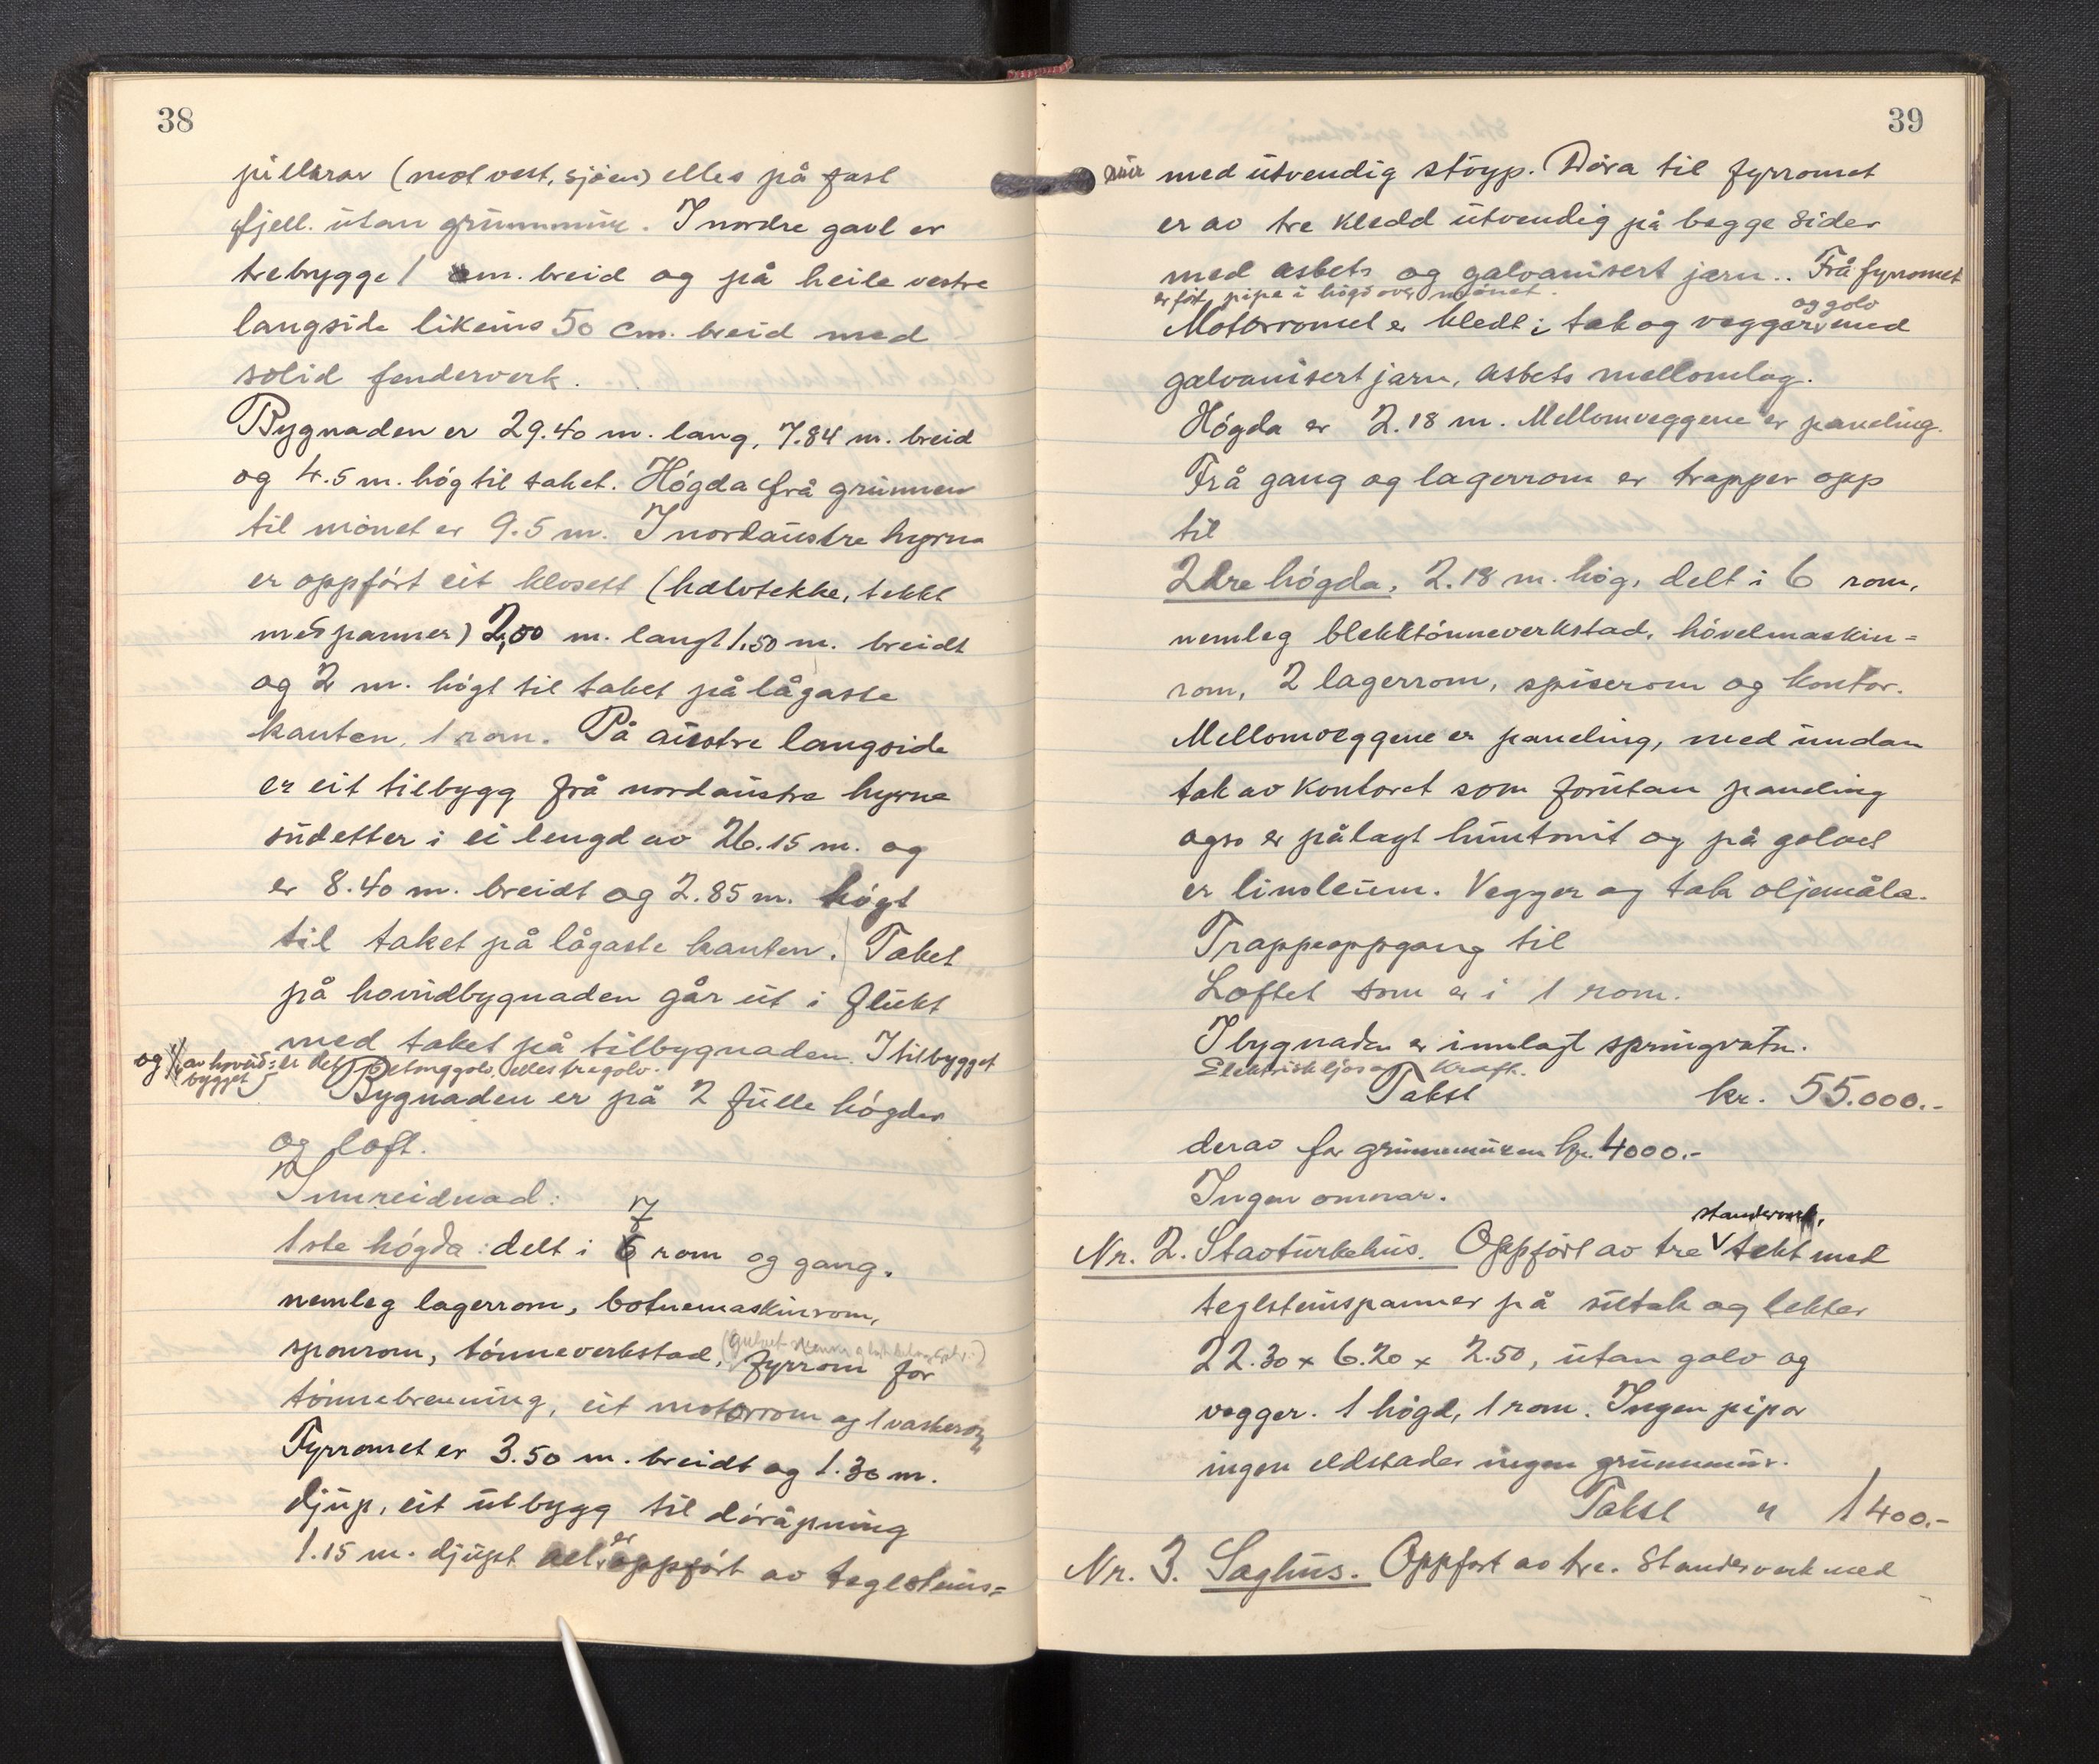 38
pillarar (mot vest, sjöen) elles på fast
fjell. utan grunnmur. I nordre gavl er
trebrygge 1 m. breid og på heile vestre
langside likeins 50 cm. breid med
solid fenderverk.
Bygnaden er 29.40 m. lang, 7.84 m. breid
og 4.5 m. høg til taket. Høgda frå grunnen
til mönet er 9.5 m. I nordaustre hyrna
er oppfört eit klosett (halvtekke, tekkt
med panner) 2,00 m. langt 1.50 m. breidt
og 2 m. högt til taket på lågaste
kanten, 1 rom. På austre langside
er eit tilbygg frå nordaustre hyrne
sudetter i ei lengd av 26.15 m. og
er 8.40 m. breidt og 2.85 m. högt
til taket på lågaste kanten. Taket
på hovudbygnaden går ut i flukt
med taket på tilbygnaden. I tilbygget
og av hovud= er det betonggolv, elles tregolv.
bygget
Bygnaden er på 2 fulle högder
og loft.
Innreidnad:
7
1ste högda: delt i 6 rom og gang.
nemleg lagerrom, botnemaskinrom,
sponrom, tönneverkstad, fyrrom for
tönnebrenning, eit motorrom og 1 vaskerom
Fyrromet er 3.50 m. breidt og 1.30 m.
djup, eit utbygg til döråpning
1.15 m. djupt er oppfört av teglsteins=
39
mur med utvendig stöyp. Döra til fyrromet
er av tre kledd utvendig på begge sider
med asbets og galvanisert jarn.. Frå fyrromet
er fört pipe i högd over mönet.
og golv
Motorromet er kledt i tak og vegger med
galvanisert jarn, asbets mellomlag.
Högda er 2.18 m. Mellomveggene er paneling.
Frå gang og lagerrom er trapper opp
til
2dre högda, 2.18 m. hög, delt i 6 rom,
nemleg blekktönneverkstad, hövelmaskin=
rom, 2 lagerrom, spiserom og kontor.
Mellomveggene er paneling, med undan
tak av kontoret som forutan paneling
ogso er pålagt huntonit og på golvet
er linoleum. Vegger og tak oljemåla.
Trappeoppgang til
Loftet som er i 1 rom.
I bygnaden er innlagt springvatn.
Elektrisk ljos og kraft.
Takst kr. 55.000.-
derav for grunnmuren kr. 4000.-
Ingen omnar.
standerverk,
Nr. 2. Stavturkehus. Oppfört av tre tekt med
teglsteinspanner på sutak og lekter
22.30 x 6.20 x 2.50, utan golv og
vegger. 1 högd, 1 rom. Ingen pipor
ingen eldstader ingen grunnmur.
Takst " 1400.-
Nr. 3. Saghus. Oppfört av tre. Standerverk med